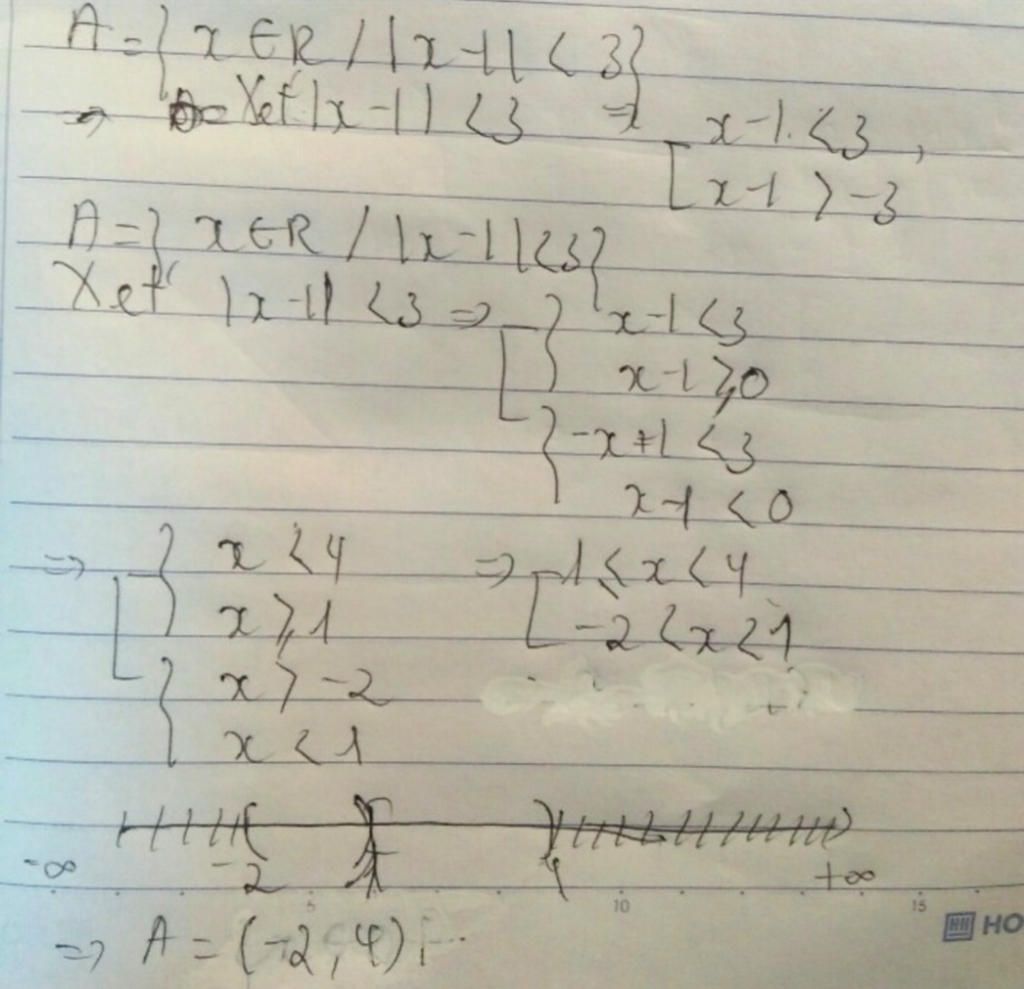 A = { x ∈ R / |x-1| < 3}
=> Xét |x-1| < 3 => [ x-1 < 3,
x-1 > -3
A = { x ∈ R / |x-1| < 3}
Xét |x-1| < 3 => [ { x-1 < 3
x-1 ≥ 0
{ -x+1 < 3
x-1 < 0
=> [ { x < 4 => [ 1 ≤ x < 4
x ≥ 1 -2 < x < 1
{ x > -2
x < 1
-∞ -2 1 4 +∞
5 10 15
HO
=> A = (-2, 4)